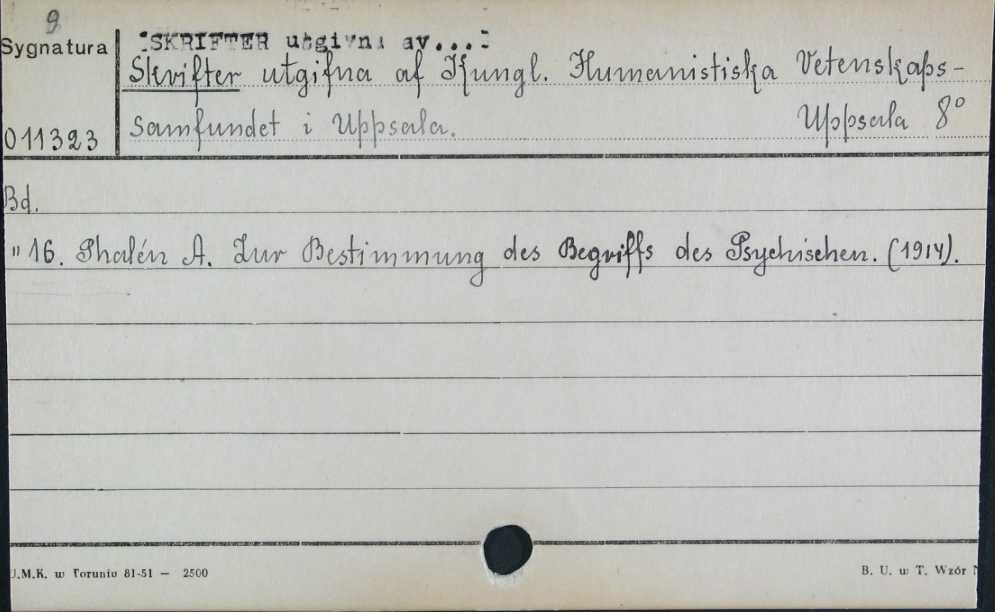 9
Sygnatura
"SKRIFTER utgivna av..."
Skrifter utgifna af Kungl. Humanistiska Vetenskaps-
011323
samfundet i Uppsala. Uppsala 8°
Bd.
" 16. Phalén A. Zur Bestimmung des Begriffs des Psychischen. (1914).
U.M.K. w Toruniu 81-51 — 2500
B. U. w T. Wzór